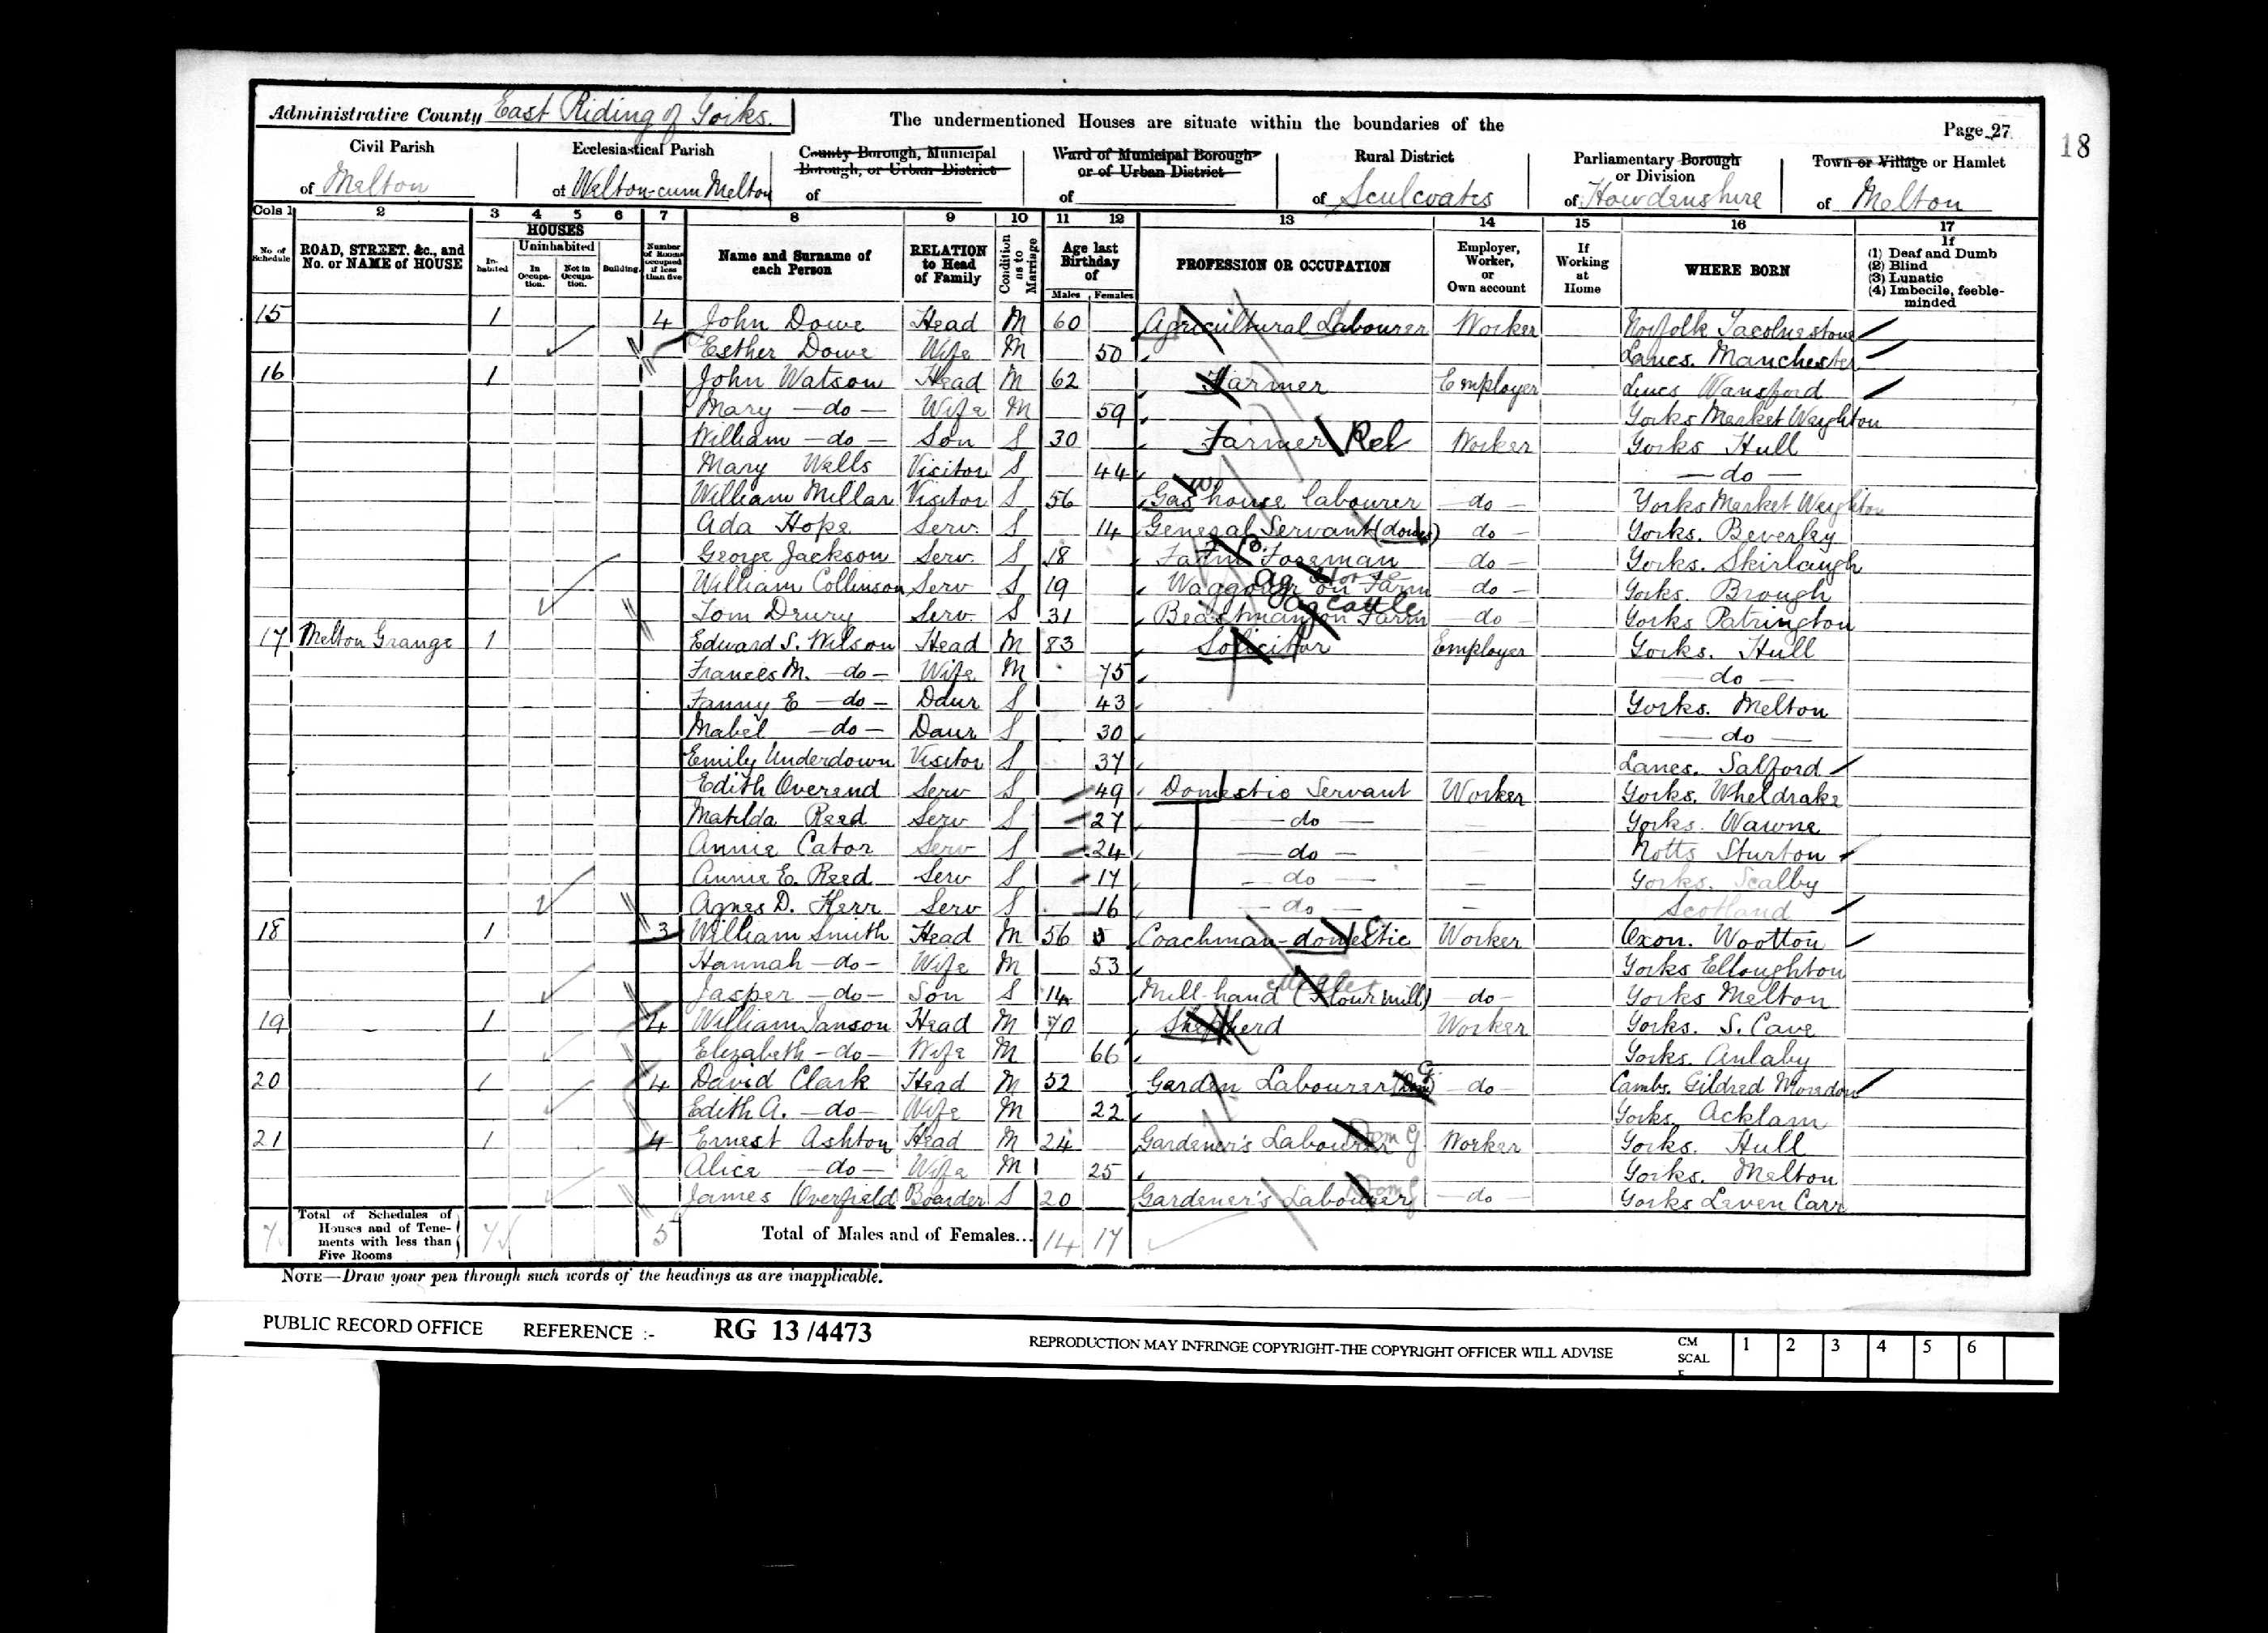 Administrative County East Riding of Yorks.
The undermentioned Houses are situate within the boundaries of the
Page 27
18
Civil Parish of Melton
Ecclesiastical Parish of Welton-cum Melton
County Borough, Municipal Borough, or Urban District of
Ward of Municipal Borough or of Urban District of
Rural District of Sculcoates
Parliamentary Borough or Division of Howdenshire
Town or Village or Hamlet of Melton
Cols 1 2 3 4 5 6 7 8 9 10 11 12 13 14 15 16 17
No. of Schedule
ROAD, STREET, &c., and No. or NAME of HOUSE
HOUSES
Inhabited
Uninhabited
In Occupation.
Not in Occupation.
Building.
Number of Rooms occupied if less than five
Name and Surname of each Person
RELATION to Head of Family
Condition as to Marriage
Age last Birthday of
Males Females
PROFESSION OR OCCUPATION
Employer, Worker, or Own account
If Working at Home
WHERE BORN
If (1) Deaf and Dumb (2) Blind (3) Lunatic (4) Imbecile, feeble-minded
15 1 4 John Dowe Head M 60 Agricultural Labourer Worker Norfolk Tacolnestone
Esther Dowe Wife M 50 Lancs. Manchester
16 1 John Watson Head M 62 Farmer Employer Lincs Wansford
Mary — do — Wife M 59 Yorks Market Weighton
William — do — Son S 30 Farmer Rel Worker Yorks Hull
Mary Wells Visitor S 44 — do —
William Millar Visitor S 56 Gas house labourer — do — Yorks Market Weighton
Ada Hope Serv. S 14 General Servant (domes) do — Yorks. Beverley
George Jackson Serv. S 18 Farm Foreman — do — Yorks. Skirlaugh
William Collinson Serv S 19 Waggoner on Farm Ag Horse — do — Yorks. Brough
Tom Drury Serv. S 31 Beastman on Farm Ag Cattle — do — Yorks Patrington
17 Melton Grange 1 Edward S. Wilson Head M 83 Solicitor Employer Yorks. Hull
Frances M. — do — Wife M 75 — do —
Fanny E — do — Daur S 43 Yorks. Melton
Mabel — do — Daur S 30 — do —
Emily Underdown Visitor S 37 Lancs. Salford
Edith Overend Serv S 49 Domestic Servant Worker Yorks. Wheldrake
Matilda Reed Serv S 27 — do — — Yorks. Wawne
Annie Cator Serv S 24 — do — — Notts Sturton
Annie E. Reed Serv S 17 — do — — Yorks. Scalby
Agnes D. Kerr Serv S 16 — do — — Scotland
18 1 3 William Smith Head M 56 Coachman-domestic Worker Oxon. Wootton
Hannah — do — Wife M 53 Yorks Elloughton
Jasper — do — Son S 14 Mill-hand (Flour mill) — do — Yorks Melton
19 1 4 William Janson Head M 70 Shepherd Worker Yorks. S. Cave
Elizabeth — do — Wife M 66 Yorks. Anlaby
20 1 4 David Clark Head M 52 Garden Labourer — do — Cambs. Gildred Moredow
Edith A. — do — Wife M 22 Yorks. Acklam
21 1 4 Ernest Ashton Head M 24 Gardener's Labourer Dom G Worker Yorks. Hull
Alice — do — Wife M 25 Yorks. Melton
James Overfield Boarder S 20 Gardener's Labourer Dom G — do — Yorks Leven Carr
7 Total of Schedules of Houses and of Tenements with less than Five Rooms 7 5 Total of Males and of Females... 14 17
NOTE—Draw your pen through such words of the headings as are inapplicable.
PUBLIC RECORD OFFICE REFERENCE :- RG 13 /4473
REPRODUCTION MAY INFRINGE COPYRIGHT-THE COPYRIGHT OFFICER WILL ADVISE
CM SCAL 1 2 3 4 5 6